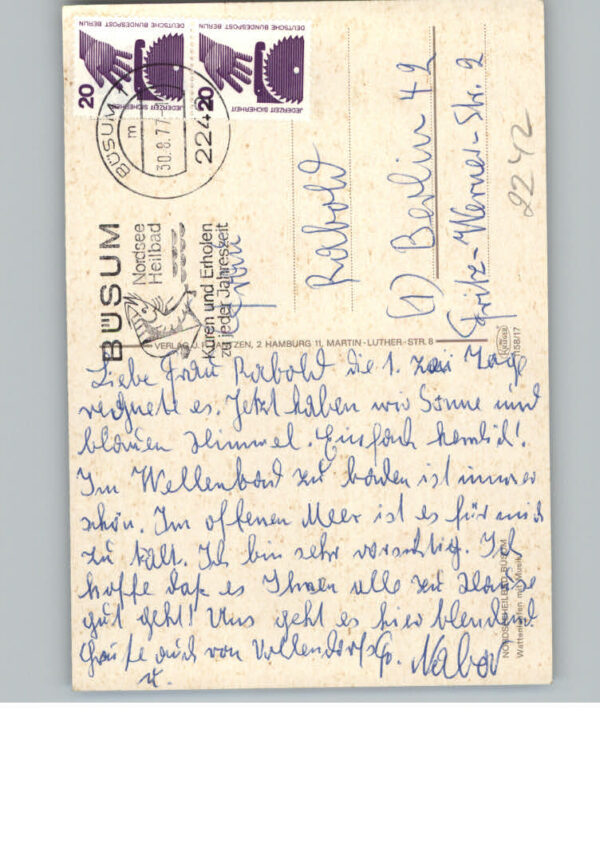 20
DEUTSCHE BUNDESPOST BERLIN
JEDERZEIT SICHERHEIT
20
DEUTSCHE BUNDESPOST BERLIN
JEDERZEIT SICHERHEIT
BÜSUM 1
m
30.8.77
2242
BÜSUM
Nordsee
Heilbad
Kuren und Erholen
zu jeder Jahreszeit
Frau
Rabold
(1) Berlin 42
Fritz-Werner-Str. 2
2242
2 HAMBURG 11, MARTIN-LUTHER-STR. 8
158/17
NORDSEEHEILBAD BÜSUM
Wattenlaufen mit Musik
Liebe Frau Rabold die 1. zwei Tage
regnete es. Jetzt haben wir Sonne und
blauen Himmel. Einfach herrlich!
Im Wellenbad zu baden ist immer
schön. Im offenen Meer ist es für mich
zu kalt. Ich bin sehr vorsichtig. Ich
hoffe daß es Ihnen alle zu Hause
gut geht! Uns geht es hier blendend
Grüße auch von